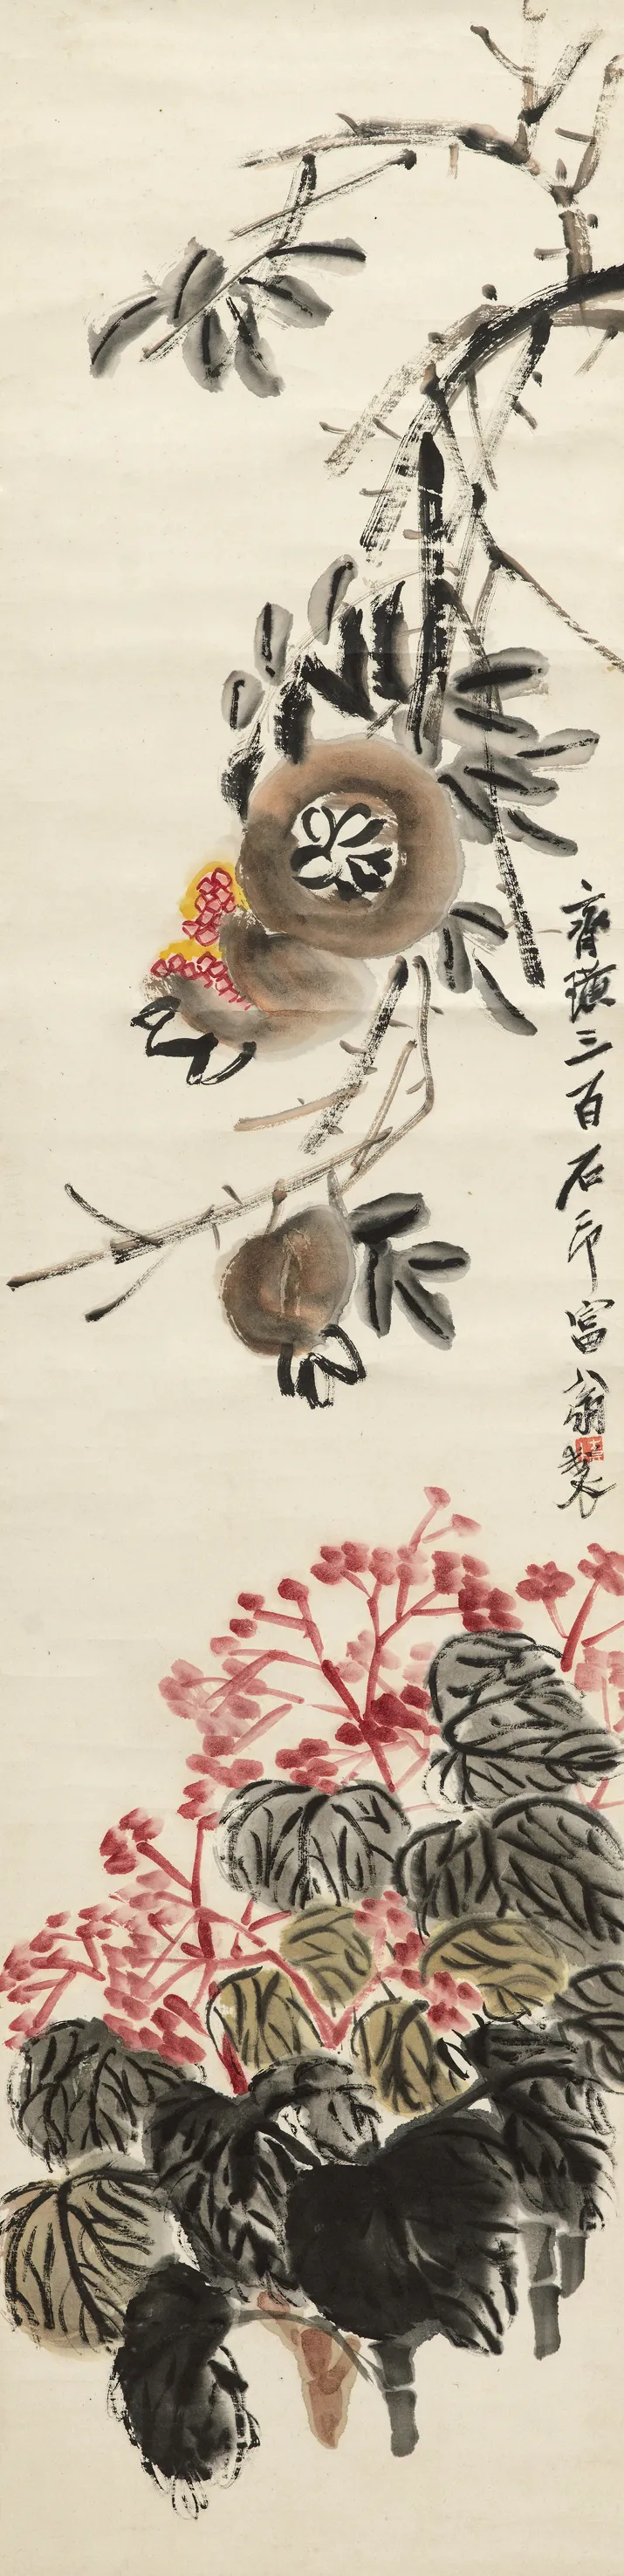 齊璜三百石印富翁製